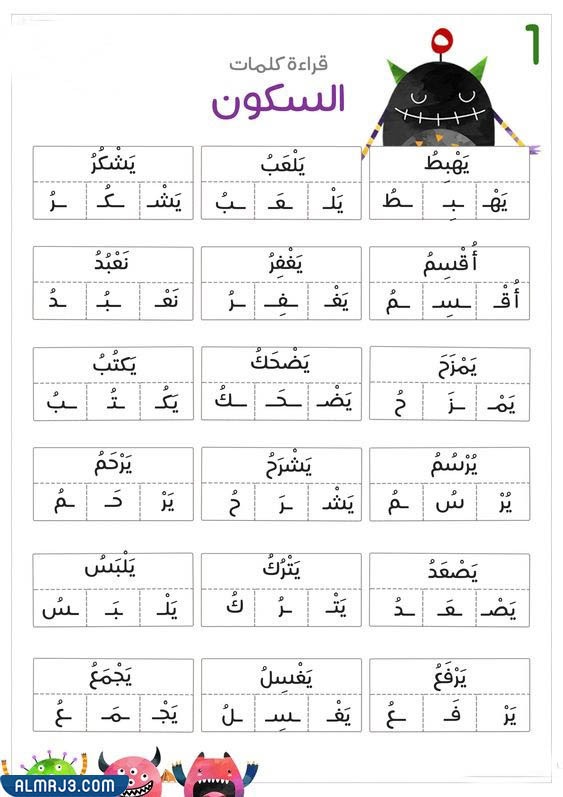 ١
ه
قراءة كلمات
السكون
يَهْبِطُ يَلْعَبُ يَشْكُرُ
يَهْـ ـبِـ ـطُ يَلْـ ـعَـ ـبُ يَشْـ ـكُـ ـرُ
أُقْسِمُ يَغْفِرُ نَعْبُدُ
أُقْـ ـسِـ ـمُ يَغْـ ـفِـ ـرُ نَعْـ ـبُـ ـدُ
يَمْزَحَ يَضْحَكُ يَكتُبُ
يَمْـ ـزَ حُ يَضْـ ـحَـ ـكُ يَكُـ ـتُـ ـبُ
يُرْسُمُ يَشْرَحُ يَرْحَمُ
يُرْ سُ ـمُ يَشْـ ـرَ حُ يَرْ حَـ ـمُ
يَصْعَدُ يَتْرُكُ يَلْبَسُ
يَصْـ ـعَـ ـدُ يَتْـ ـرُ كُ يَلْـ ـبَـ ـسُ
يَرْفَعُ يَغْسِلُ يَجْمَعُ
يَرْ فَـ ـعُ يَغْـ ـسِـ ـلُ يَجْـ ـمَـ ـعُ
ALMRJ3.COM